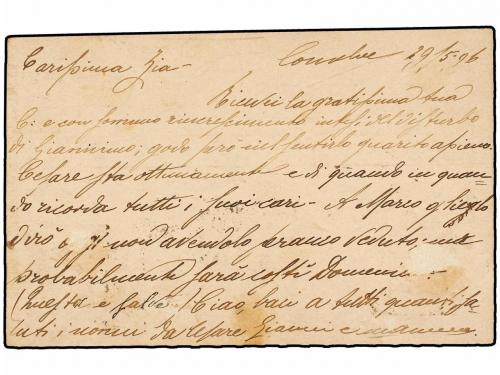 Carissima Zia - Conselve 29/5-96
Ricevei la gratissima tua
C. e con sommo rincrescimento intesi del disturbo
di Giannino; godo però nel sentirlo guarito appieno.
Cesare sta ottimamente e di quando in quan=
do ricorda tutti i suoi cari - A Marco glielo
dirò oggi non avendolo veduto, ma
probabilmente sarà costì Domenica -
(Questa è falsa) Ciao, baci a tutti quanti, sa=
luti, i nonni da Cesare Gianni e mamma